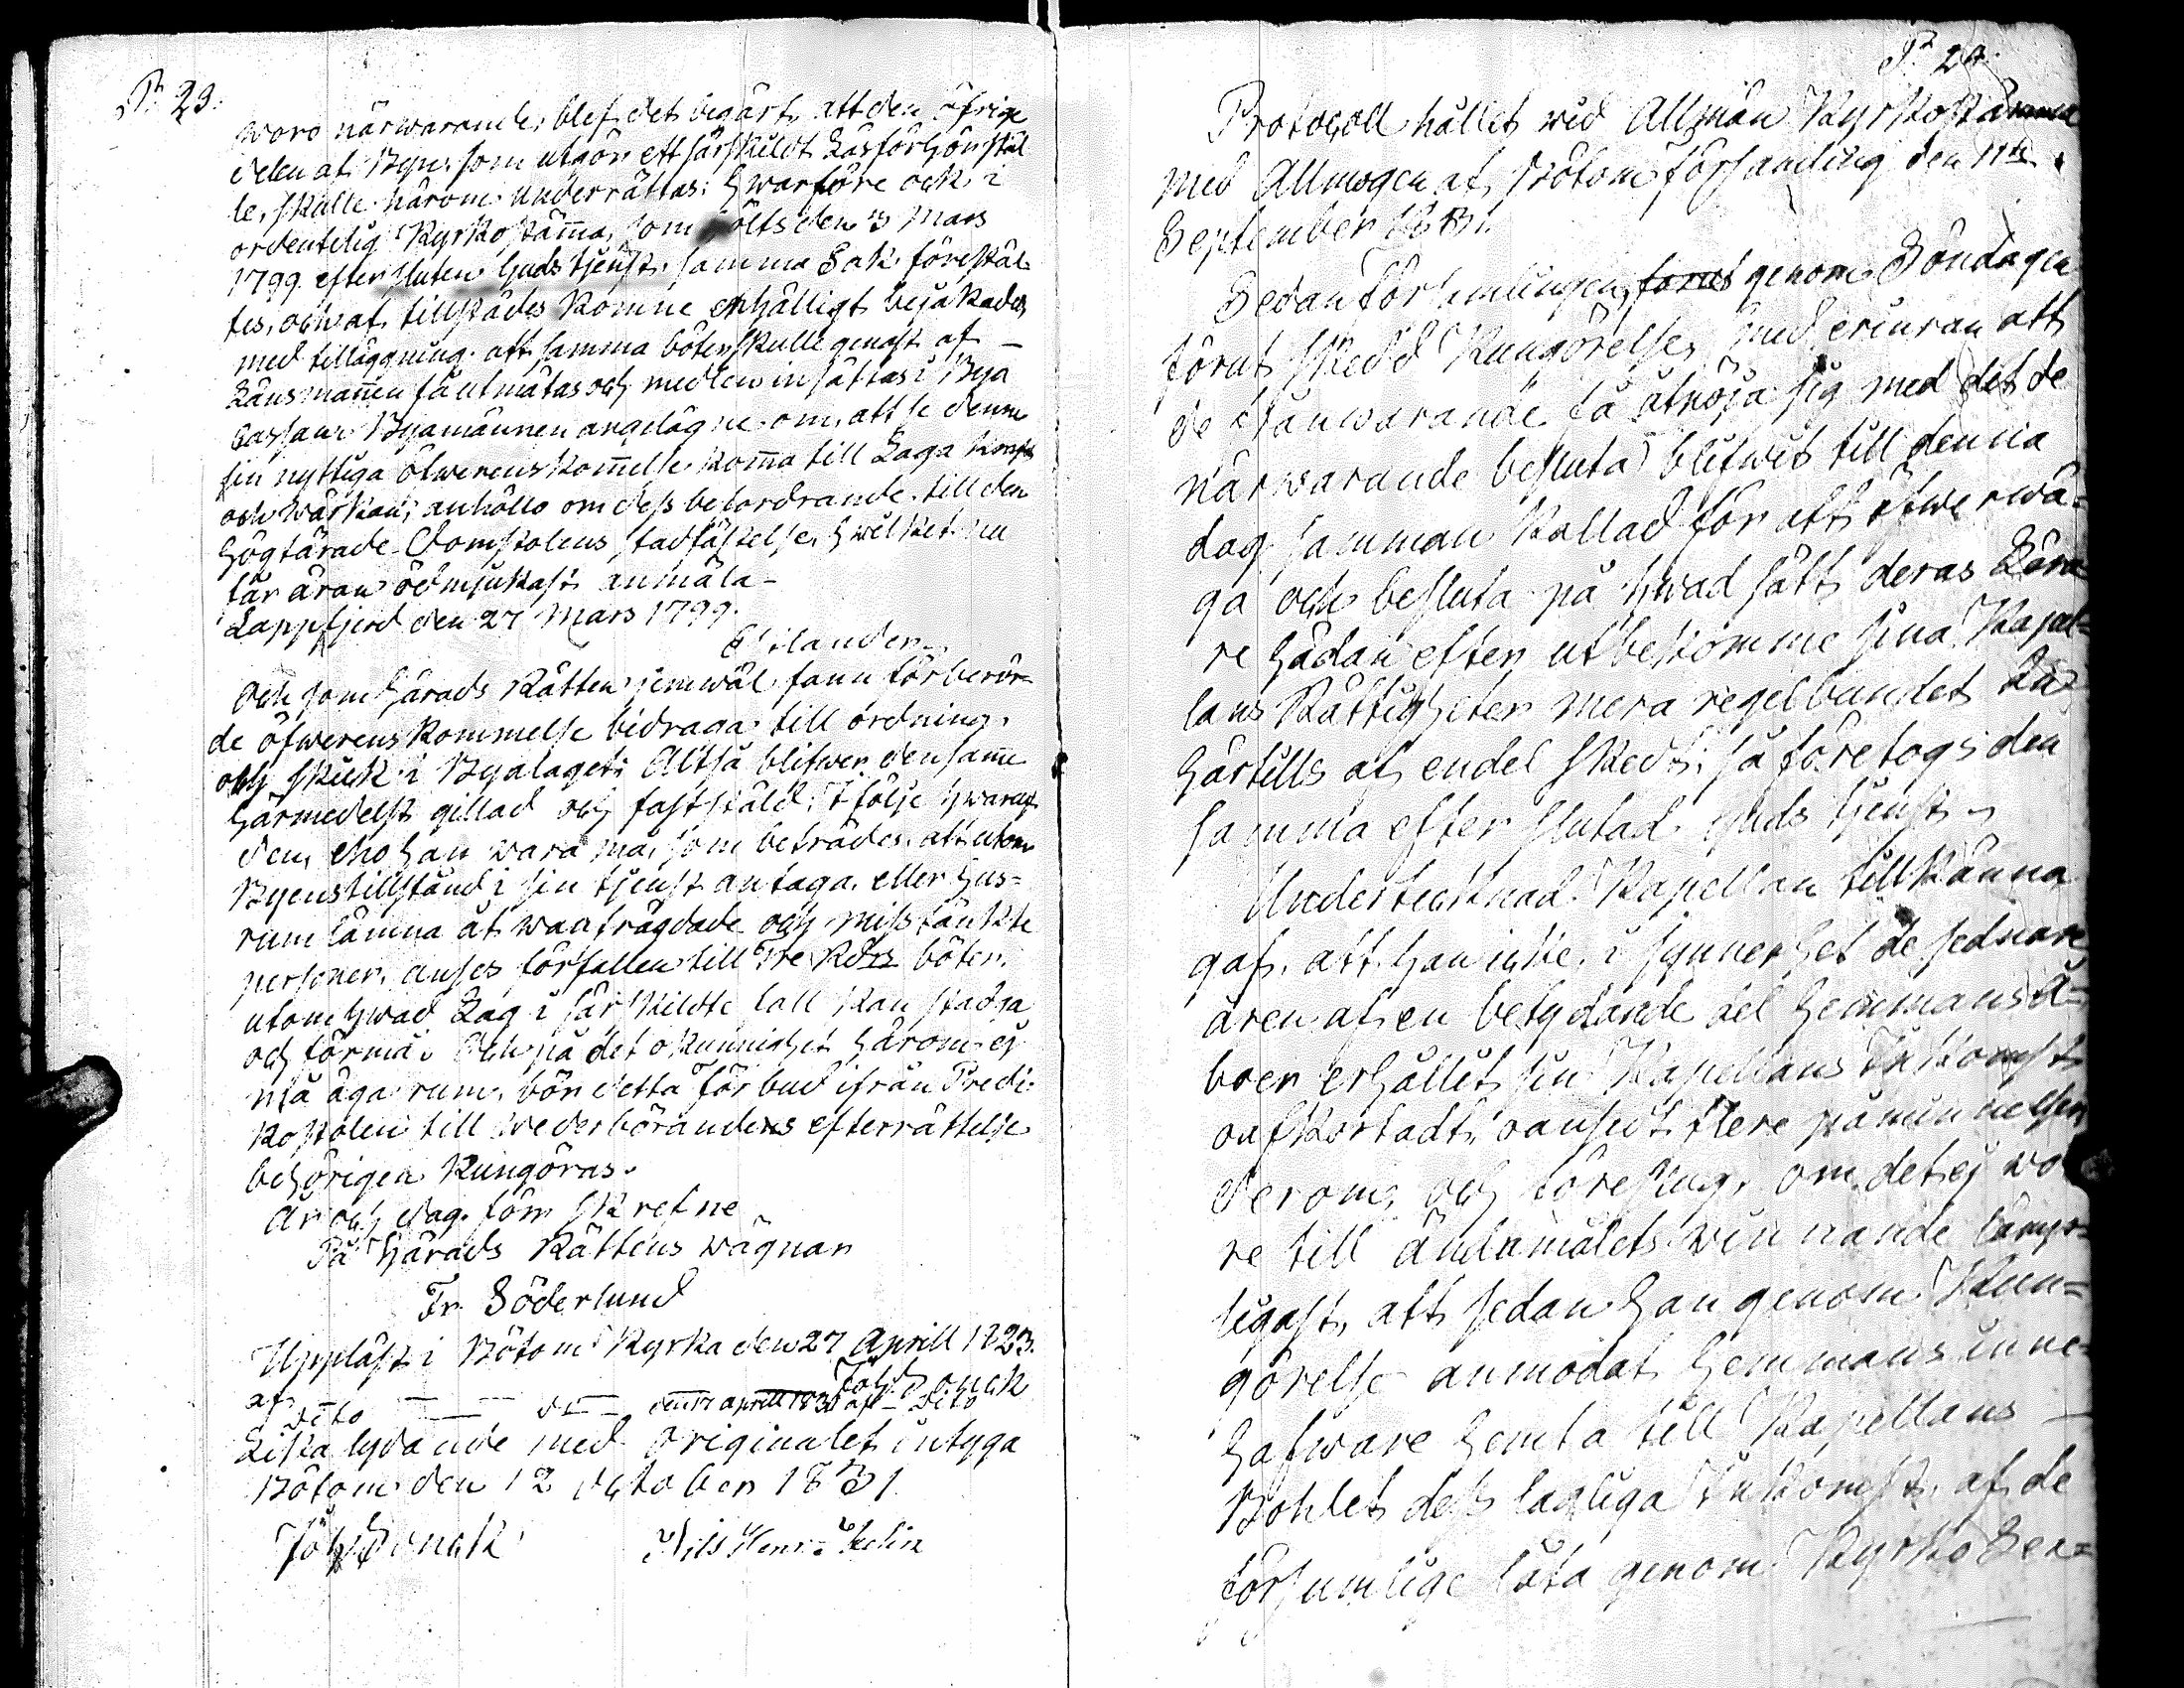 P: 23.
woro närwarande, blef det begärt, att den öfrige
delen af Byn, som utgör ett särskildt Läsförhörsstäl
le, skulle härom underrättas; Hwarföre ock i
ordentelig Kyrkostämma, som hölts den 3 Mars
1799 efter sluten Gudstjenst, samma Sak förestäl-
tes, och af tillstädes komne enhälligt bejakades
med tilläggning, att samma böter skulle genast af
Länsmannen få utmätas och medlen insättas i Bya
Cassan. Byamännen angelägne om, att se denne
sin nyttiga öfwerenskommelse komma till Laga kraft
och wärkan, anhöllo om dess befordrande till den
Högtärade Domstolens stadfästelse, hwilket nu
får äran ödmjukast anmäla
Lappfjerd den 27 Mars 1799.
Och som Härads Rätten jemwäl fann förberör-
de öfwerenskommelse bidraga till ordning
och skick i Byalaget; Altså blifwer densamme
härmedelst gillad och fastställd; I följe hwaraf
den, eho han wara må, som beträdes, att utom
Byens tillstånd i sin tjenst antaga, eller hus-
rum lämna åt wanfrägdade och misstänkte
personer, anses förfallen till Tre Rdrs böter,
utom hwad Lag i särskildte fall kan stadga
och förmå; Och på det okunnighet härom ej
må äga rum, bör detta förbud ifrån Predi-
kostolen till wederbörandens efterrättelse
behörigen kungöras.
År och dag som skrefne
På Härads Rättens wägnar
Fr. Söderlund
Uppläst i Bötom Kyrka den 27 Aprill 1823.
af Joh Honck
dito — — d — den 17 aprill 1830 af — dito
Lika lydande med originalet intyga
Bötom den 12 october 1831
Joh Honck Nils Henr:
P: 24.
Protocoll hållet wid Allmän Kyrkostämma
med Allmogen af Bötom församling den 11te
September 1831.
Sedan Församlingen, förut genom Söndagen
förut skedd Kungörelse, med erinran att
de frånwarande få åtnöja sig med det de
närwarande besluta, blifwit till denna
dag samman kallad för att öfwerwä-
ga och besluta på hwad sätt deras Lära
re hädan efter utbekomme sina Kapel-
lans Rättigheter mera regelbundet än
härtills af endel skedt; så företogs den
samma efter slutad Guds tjenst.
Undertecknad Kapellan tillkänna
gaf, att han icke, i synnerhet de sednare
åren af en betydande del Hemmans å-
boer erhållit sin Kapellans Inkomst
oafkortadt, oansedt flere påminnelser
derom, och föreslog, om det ej wo
re till ändamålets winnande lämp-
ligast, att sedan han genom Kun-
görelse anmodat Hemmans inne-
hafware hemta till Kapellans
Bohlet dess lagliga Inkomst, af de
försumlige låta genom Kyrko Sex-